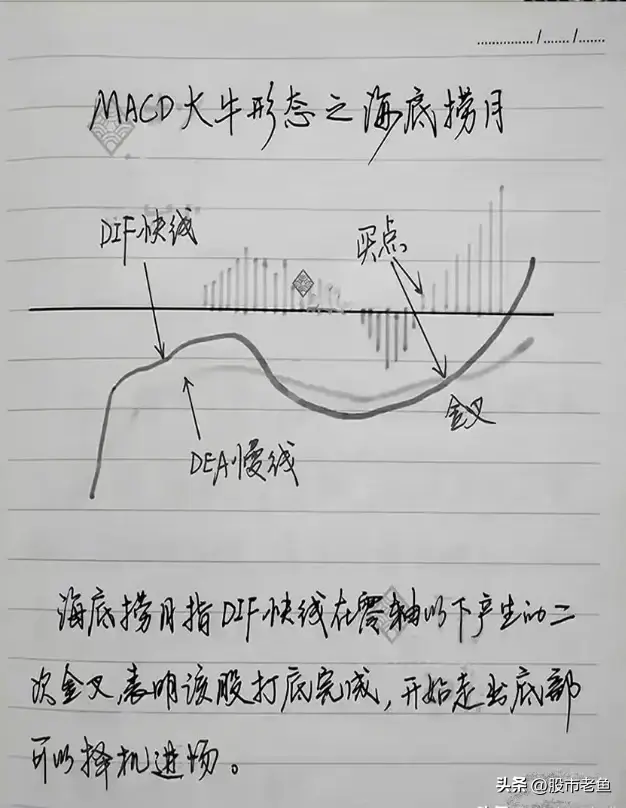 ……………/……/……
MACD大牛形态之海底捞月
DIF快线
买点
金叉
DEA慢线
海底捞月指DIF快线在零轴以下产生的二
次金叉,表明该股打底完成,开始走出底部
可以择机进场。
头条 @股市老鱼